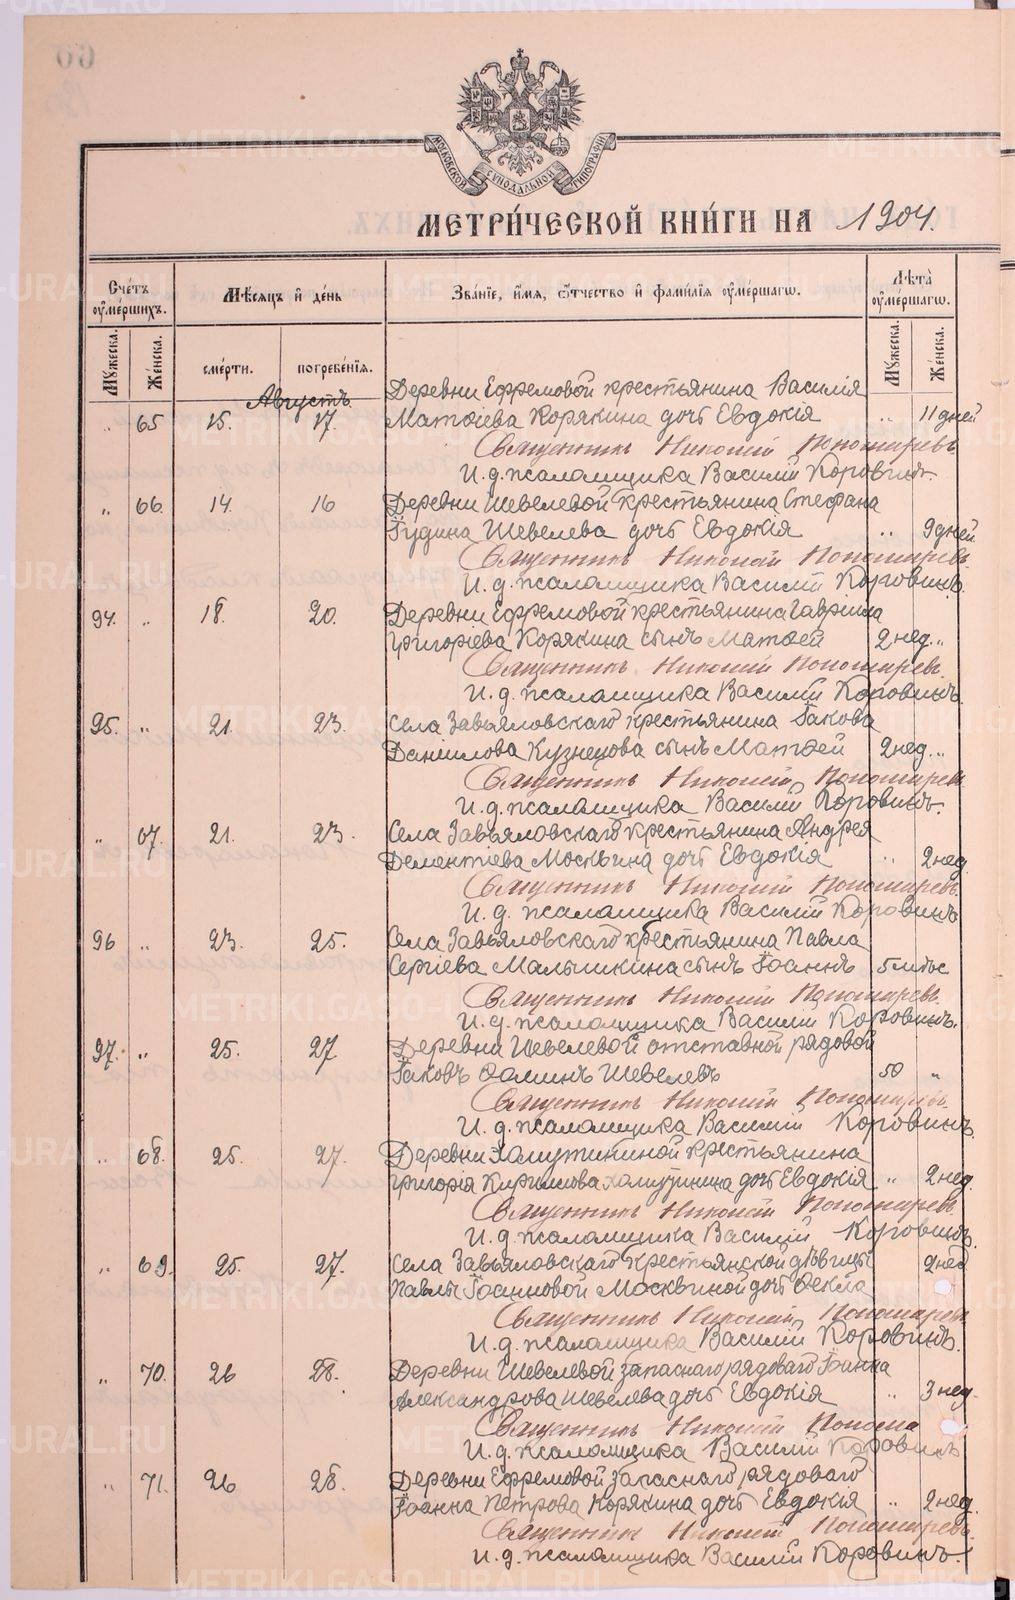 МОСКОВСКОЙ СѴНОДАЛЬНОЙ ТИПОГРАФІИ
МЕТРИ́ЧЕСКОЙ КНИ́ГИ НА 1904.
Сче́тъ ᲂу҆ме́ршихъ.
Мѣ́сяцъ и҆ де́нь
Зва́нїе, и҆́мя, ѻ҆́тчество и҆ фами́лїя ᲂу҆ме́ршагѡ.
Лѣ̀та ᲂу҆ме́ршагѡ.
Му́жеска.
Же́нска.
сме́рти.
погребе́нїя.
Му́жеска.
Же́нска.
Августъ
Деревни Ефремовой крестьянина Василія
„ 65 15. 17. Матѳіева Корякина дочь Евдокія „ 11 дней
Священникъ Николай Пономаревъ.
И. д. псаломщика Василій Коровинъ.
„ 66. 14. 16 Деревни Шевелевой крестьянина Стефана
Іудина Шевелева дочь Евдокія „ 9 дней
Священникъ Николай Пономаревъ.
И. д. псаломщика Василій Коровинъ.
94. „ 18. 20. Деревни Ефремовой крестьянина Гавріила
Григоріева Корякина сынъ Матѳей 2 нед. „
Священникъ Николай Пономаревъ.
И. д. псаломщика Василій Коровинъ.
95. „ 21. 23. Села Завьяловскаго крестьянина Іакова
Даніилова Кузнецова сынъ Матѳей 2 нед. „
Священникъ Николай Пономаревъ
И. д. псаломщика Василій Коровинъ.
„ 67. 21. 23. Села Завьяловскаго крестьянина Андрея
Дементіева Москвина дочь Евдокія „ 2 нед.
Священникъ Николай Пономаревъ.
И. д. псаломщика Василій Коровинъ
96 „ 23. 25. Села Завьяловскаго крестьянина Павла
Сергіева Малышкина сынъ Іоаннъ 5 мѣс
Священникъ Николай Пономаревъ.
И. д. псаломщика Василій Коровинъ.
97. „ 25. 27. Деревни Шевелевой отставной рядовой
Іаковъ Ѳоминъ Шевелевъ 50 „
Священникъ Николай Пономаревъ.
И. д. псаломщика Василій Коровинъ.
„ 68. 25. 27. Деревни Халутикиной крестьянина
Григорія Кириллова дочь Евдокія „ 2 нед.
Священникъ Николай Пономаревъ.
И. д. псаломщика Василій Коровинъ.
„ 69. 25. 27. Села Завьяловскаго крестьянской дѣвицы 2 нед
Павлы Іоанновой Москвиной дочь Ѳекла
Священникъ Николай Пономаревъ
И. д. псаломщика Василій Коровинъ.
„ 70. 26 28. Деревни Шевелевой запаснаго рядоваго Іоанна
Александрова Шевелева дочь Евдокія „ 3 нед.
Священникъ Николай Понома
И. д. псаломщика Василій Коровинъ
„ 71. 26 28. Деревни Ефремовой запаснаго рядоваго
Іоанна Петрова Корякина дочь Евдокія „ 2 нед.
Священникъ Николай Пономаревъ.
И. д. псаломщика Василій Коровинъ.
METRIKI.GASO-URAL.RU